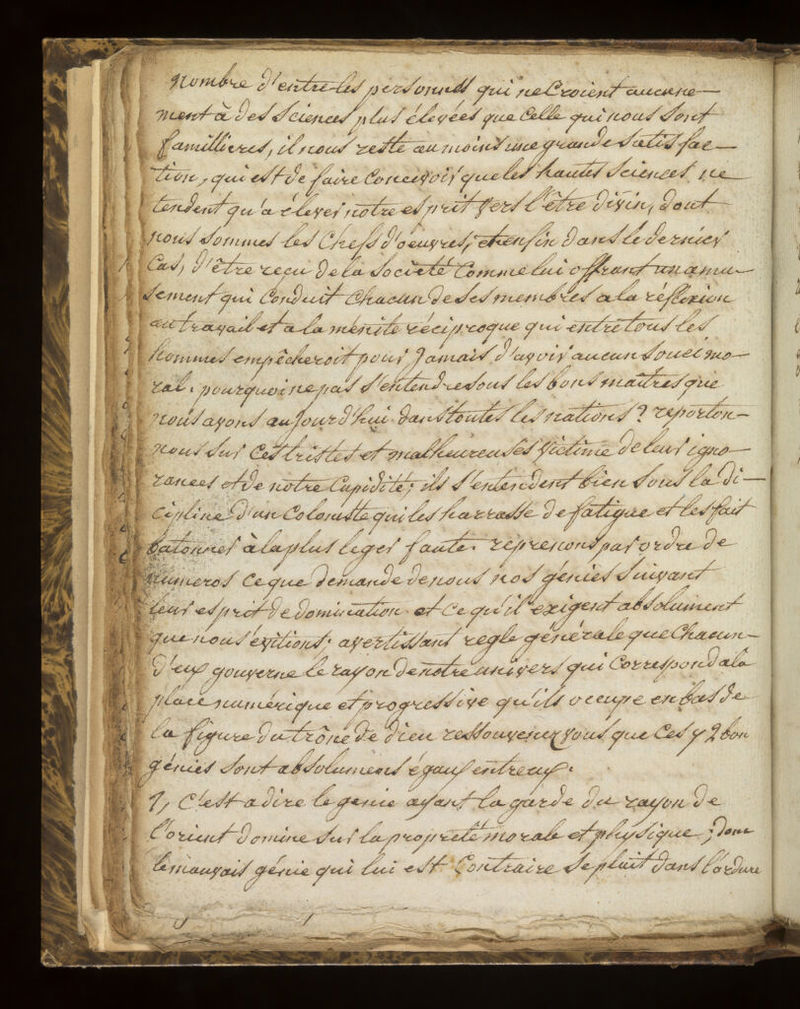 Nombre d'entre-les personnes qui ne Croient aucune-
ment à des Sciences plus élevées que Celle qui nous Sont
familliere, il nous reste au moins une grande Satisfac-
tion, qui est de faire Concevoir que les hautes Sciences ne
tendent qu'a élever notre esprit vers l'être divin, dont
nous Sommes les Chefs d'oeuvres, et enfin dans le dernier
Cas, d'être reçu de la Societé Comme lui offrant un amu-
sement qui Conduit Chacun de Ses membres a la réflexion
au travail et a la
réciproque qui entre tous les
hommes empêcheroit pour Jamais d'avoir aucun Souci mo-
ral. pourquoi ne pas S'entendre Sous les bons maitres que
nous avons aujourd'hui dans toutes les nations? reporton-
nous Sur Ces tristes et malheureuses Victime de leur igno-
rances et de notre Cupidité, ils S'entendent bien Sous la di-
cipline d'un Coloniste qui les harrasse de fatigue et les fait
batonner à la plus leger faute. reprenons par ordre de
numeros Ce que demande de nous nos génies Suivant
leur esprit de domination et Ce qu'il exigent absolument
que nous évitions. avertissant regle générale que Chacun-
d'eux gouverne le rayon de notre univers qui Correspond a la
place numérique et progressive qu'ils occupe en bas de
la figure du trône de dieu ressouvenez vous que Ces 72 bon
génies Sont absolument égaux entre eux.
1, C'est a dire le genie ayant la garde du rayon de
l'orient domine Sur la propreté morale et physique; donc
le mauvais génie qui lui est Contraire Se plait dans l'ordure